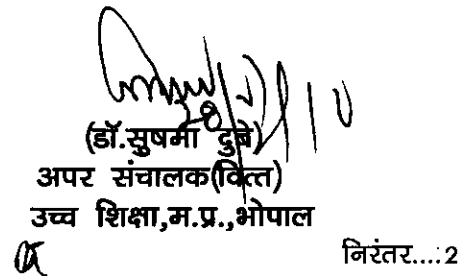 (डॉ.सुषमा दुबे)
अपर संचालक(वित्त)
उच्च शिक्षा,म.प्र.,भोपाल
निरंतर...:2